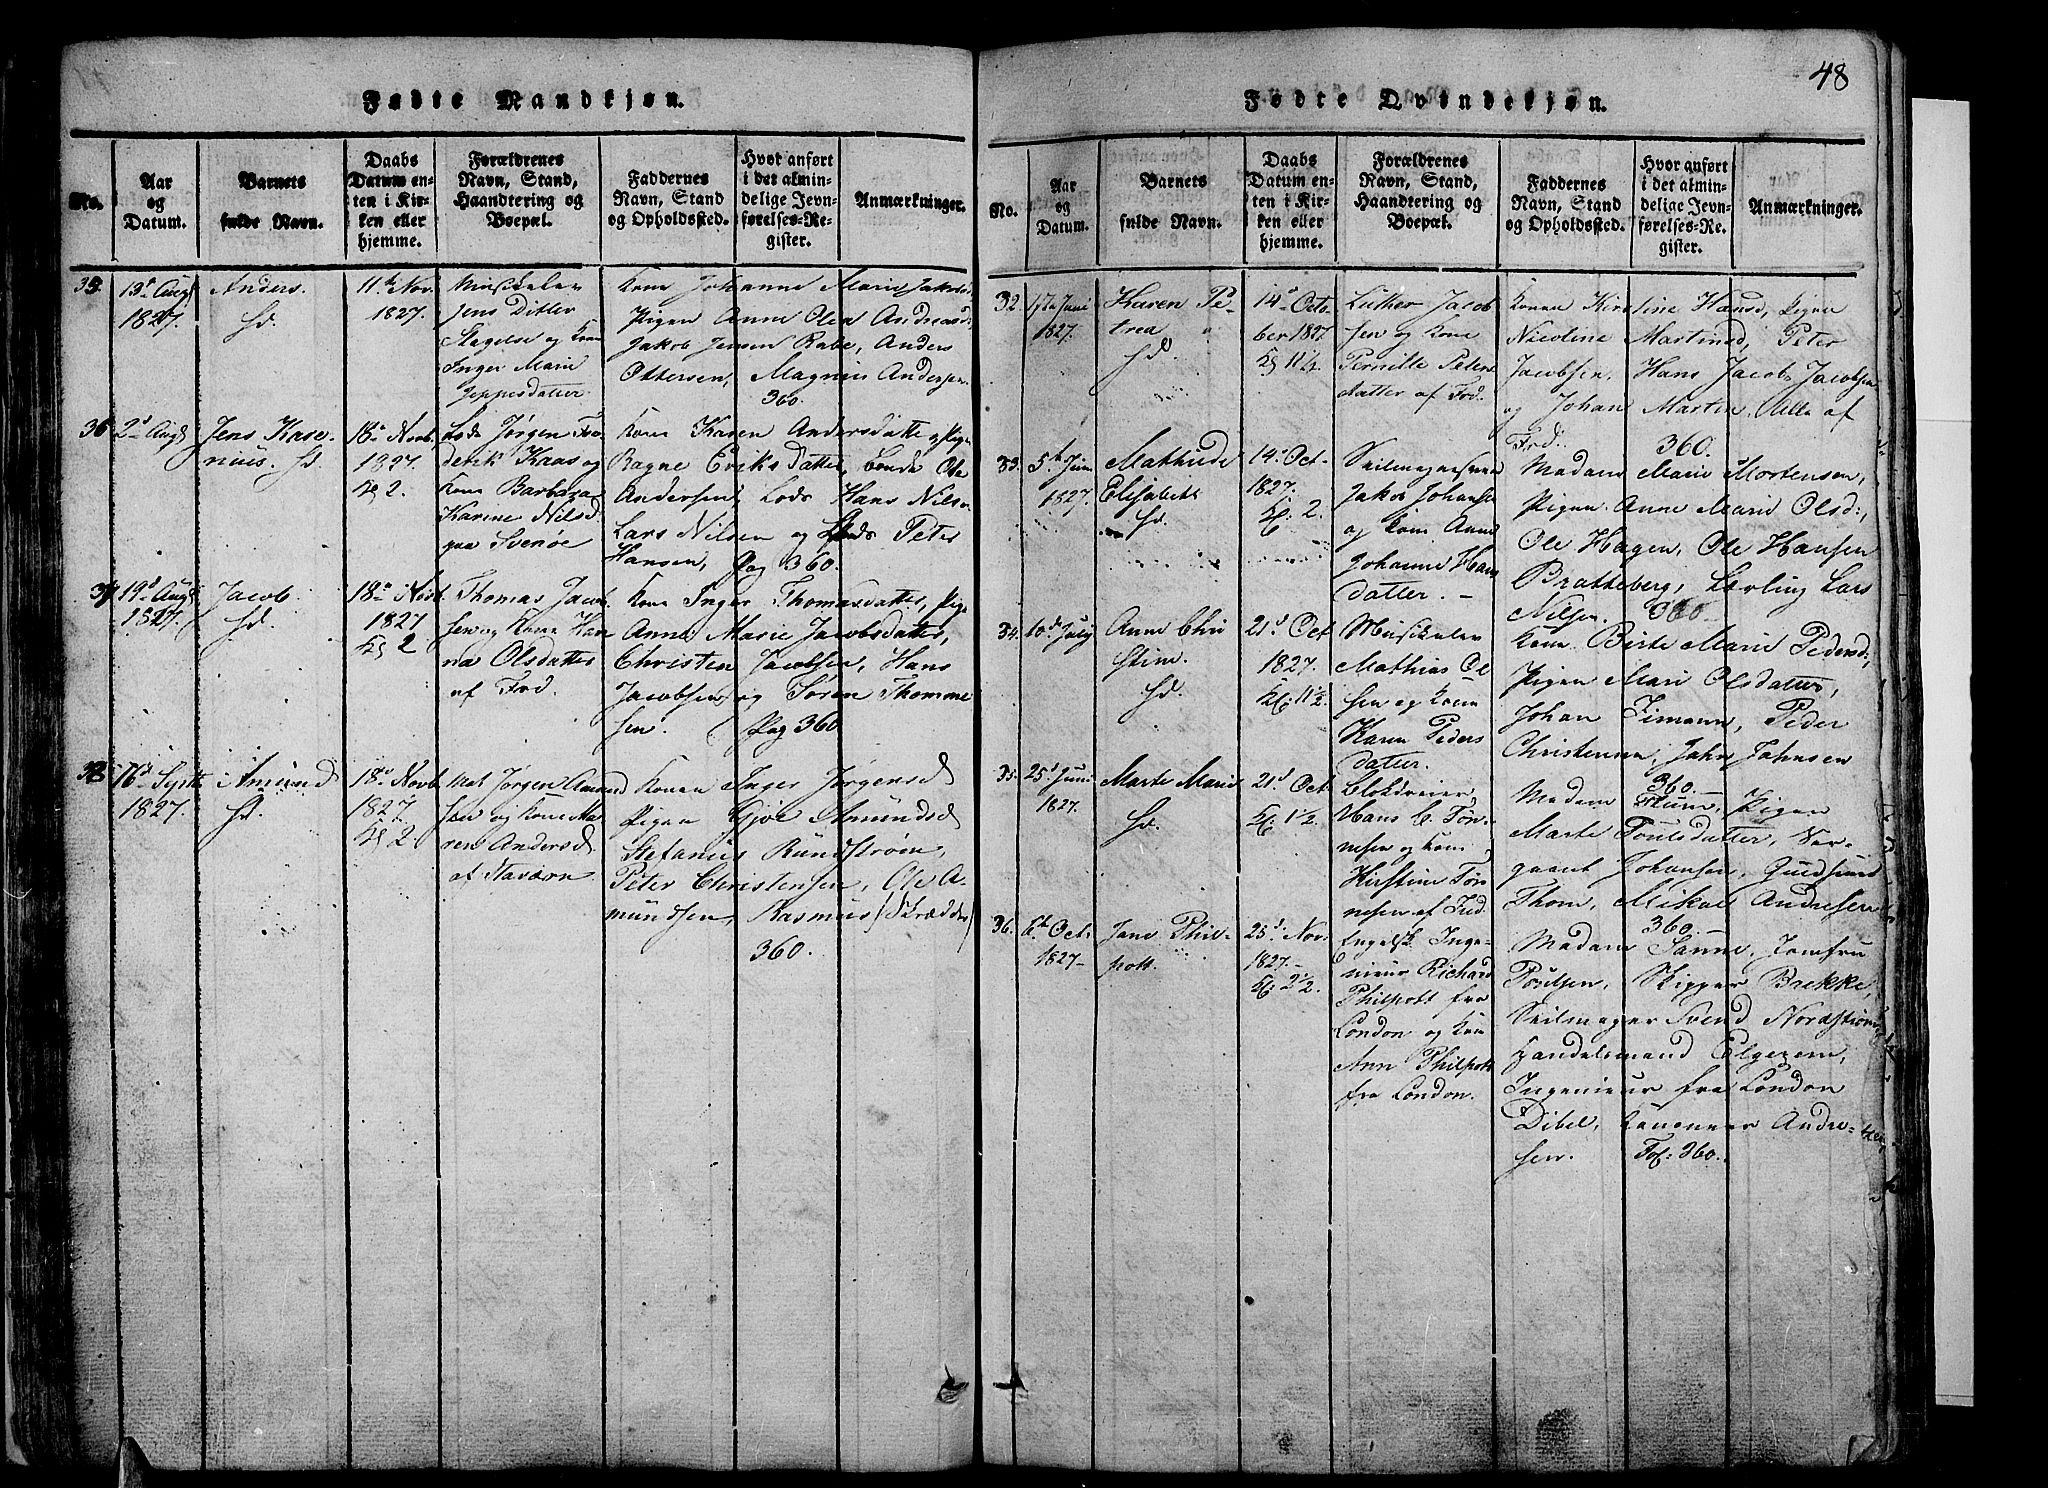 48
Fødte Mandkjøn.
No.
Aar
og
Datum.
Barnets
fulde Navn.
Daabs
Datum en-
ten i Kir-
ken eller
hjemme.
Forældrenes
Navn, Stand,
Haandtering og
Boepæl.
Faddernes
Navn, Stand
og Opholdssted.
Hvor anført
i det almin-
delige Jevn-
førelses-Re-
gister.
Anmærkninger.
35.
13de Aug
1827.
Anders.
hd.
11te Nov.
1827.
Musikeler
Jens Ditler
Slagelse og Kone
Inger Marie
Jeppesdatter
Kone Johanne Marie Jakobsd
Pigen Anne Olea Andreasd
Jakob Jensen Rabe, Anders
Ottersen, Magnus Andersen
360.
36
2d Aug
Jens Kase-
nius. hd.
18de Novb.
1827.
Kl 2.
Lods Jørgen Fre
derik Kaas og
Kone Barbara
Karine Nilsd
paa Svenøe
Kone Karen Andersdatte og Pigen
Ragne Eriks Datter, Lods Ole
Andersen, Lods Hans Nilsen
Lars Nilsen og Lods Peter
Hansen, Pag 360.
37
19d Aug
1827.
Jacob
hd.
18de Novb
1827
Kl 2
Thomas Jacob
sen og Kone Han
na Olsdatter
af Frd.
Kone Inger Thomasdatter, Pige
Anne Marie Jacobsdatter,
Christen Jacobsen, Hans
Jacobsen, og Søren Thomme
sen. Pag 360
38
16d Septb
1827.
Amund
hd.
18de Novb
1827.
Kl 2
Mat Jørgen Amund
sen og Kone Ma
ren Andersd
af Staværn
Konen Inger Jørgensd
Pigen Gjøe Amundsd
Stefanus Rundstrøm,
Peter Christensen, Ole A-
mundsen, Rasmus (Skrædder)
360.
Fødte Qvindekjøn.
No.
Aar
og
Datum.
Barnets
fulde Navn.
Daabs
Datum en-
ten i Kir-
ken eller
hjemme.
Forældrenes
Navn, Stand,
Haandtering og
Boepæl.
Faddernes
Navn, Stand
og Opholdssted.
Hvor anført
i det almin-
delige Jevn-
førelses-Re-
gister.
Anmærkninger.
32.
17de Juni
1827.
Karen Pe-
trea
hd.
14de Octo-
ber 1827
Kl 11½
Luther Jacob
sen og Kone
Pernille Peters
datter af Frd.
Konen Kirstine Hansd, Pigen
Nicoline Martinsd, Peter
Jacobsen, Hans Jacob Jacobsen
og Johan Martin Alle af
Frd. 360.
33.
5te Juni
1827.
Mathilde
Elisabeth
hd.
14d Oct.
1827.
Kl. 2
Seilmagersvend
Jakob Johansen
og Kone Anne
Johanne Hans
datter.
Madam Marie Mortensen,
Pigen Anne Marie Olsd:,
Ole Hagen, Ole Hansen
Bratteberg, Lærling Lars
Nilsen. 360
34.
10de July
Anne Chri
stine.
hd.
21d Oct
1827.
Kl. 11½
Musikeler
Mathias Ol
sen og Kone
Karen Peders
datter.
Kone Birte Marie Pedersd:,
Pigen Mari Olsdatter,
Johan Timann, Peder
Christensen, John Johnsen
360.
35.
25d Juni
1827.
Marte Marie
hd.
21d Oct
Kl. 1½
Blokdreier
Hans C. Tøn-
nesen og Kone
Kirstine Tøn
nesen af Frd.
Madam Thum, Pigen
Marte Poulsdatter, Ser-
geant Johansen, Gundsund
Thom, Mikael Andresen
360.
36.
6te Oct.
1827
Jane Phil-
pott.
25d Nov.
1827.
Kl. 2½
Engelsk Inge-
nieur Richard
Philpott fra
London og Kone
Ann Philpott
fra London.
Madam Sanne, Jomfru
Poulsen, Skipper Brekke,
Seilmager Svend Nordstrøm,
Handelsmand Elgezem,
Ingenieur fra London
Dibel, Kanoneer Andre-
sen. Fol: 360.